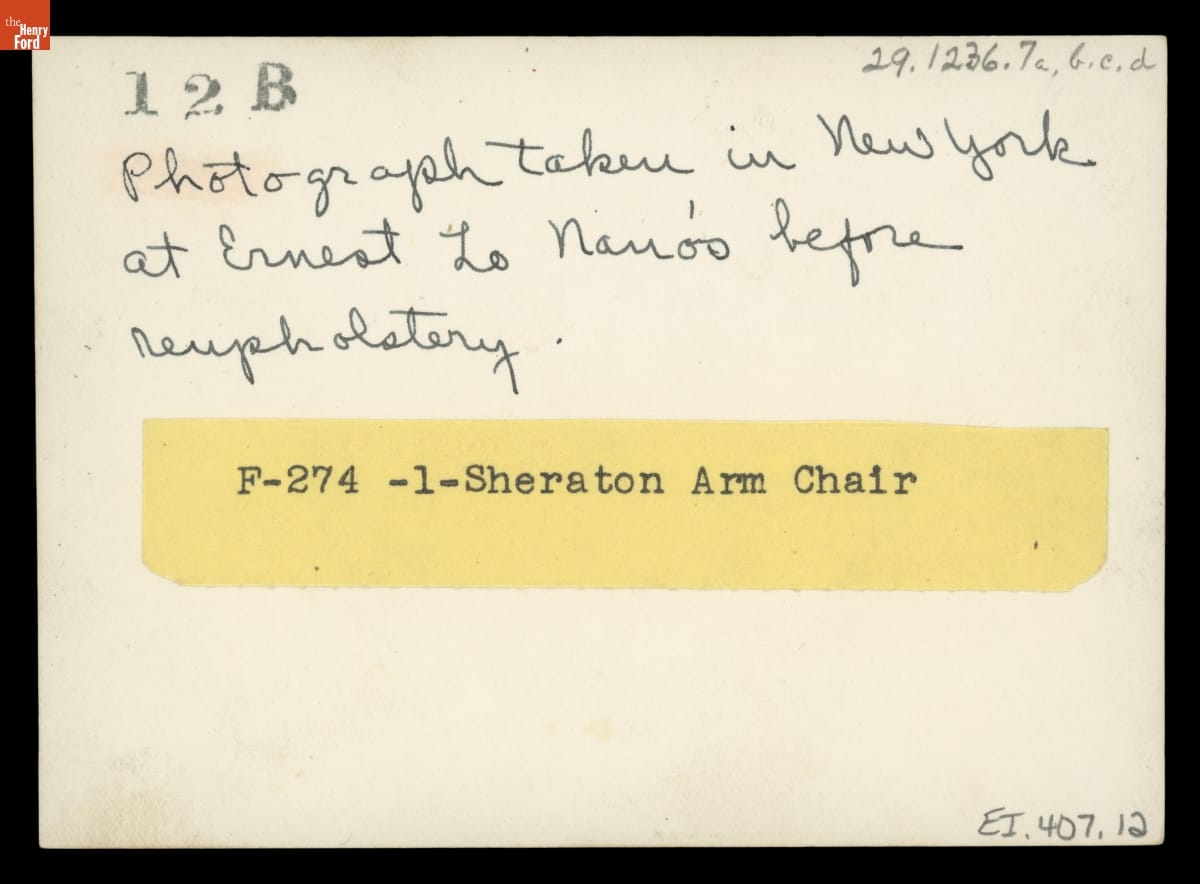 the
Henry
Ford
29.1236.7a,b.c.d
12B
Photograph taken in New York
at Ernest Lo Nano's before
reupholstery.
F-274 -1-Sheraton Arm Chair
EI.407.12